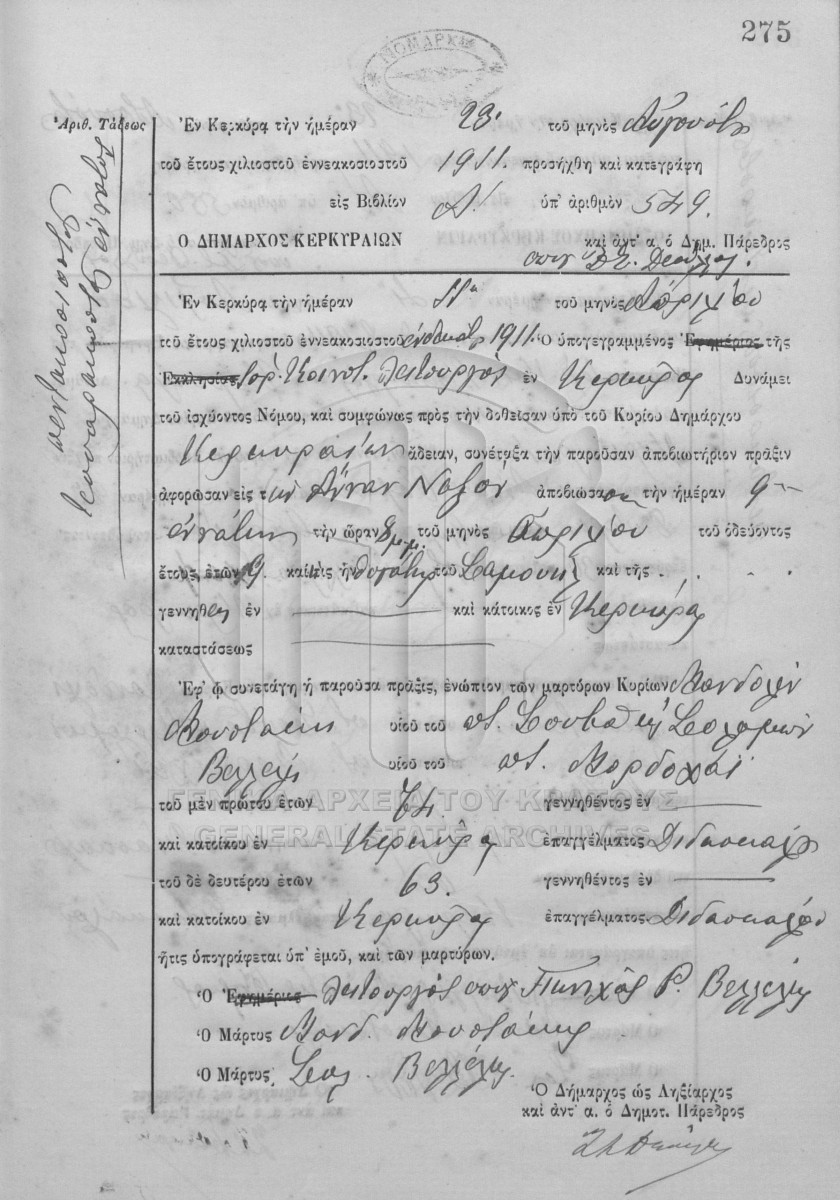 275
ΝΟΜΑΡΧΙΑ
Ἀριθ. Τάξεως
πεντακοσιοστὸν
τεσσαρακοστὸν ἔννατον
Ἐν Κερκύρᾳ τὴν ἡμέραν 23 τοῦ μηνὸς Αὐγούστου
τοῦ ἔτους χιλιοστοῦ ἐννεακοσιοστοῦ 1911. προσήχθη καὶ κατεγράφη
εἰς Βιβλίον Α' ὑπ' ἀριθμὸν 549.
Ο ΔΗΜΑΡΧΟΣ ΚΕΡΚΥΡΑΙΩΝ καὶ ἀντ' α. ὁ Δημ. Πάρεδρος
Ἐν Κερκύρᾳ τὴν ἡμέραν 11 τοῦ μηνὸς Ἀπριλίου
τοῦ ἔτους χιλιοστοῦ ἐννεακοσιοστοῦ ἑνδεκάτου 1911. Ὁ ὑπογεγραμμένος Ἐφημέριος τῆς
Ἐκκλησίας Ἰσρ. Κοινοτ. Λειτουργὸς ἐν Κερκύρᾳ Δυνάμει
τοῦ ἰσχύοντος Νόμου, καὶ συμφώνως πρὸς τὴν δοθεῖσαν ὑπὸ τοῦ Κυρίου Δημάρχου
Κερκυραίων ἄδειαν, συνέταξα τὴν παροῦσαν ἀποβιωτήριον πρᾶξιν
ἀφορῶσαν εἰς τὴν Ἄνναν ἀποβιώσασαν τὴν ἡμέραν 9
ἐννάτην τὴν ὥραν 8 μ.μ. τοῦ μηνὸς Ἀπριλίου τοῦ ὁδεύοντος
ἔτους, ἐτῶν καὶ τις ἦν θυγάτηρ τοῦ Σαμουὴλ καὶ τῆς
γεννηθεῖσα ἐν καὶ κάτοικος ἐν Κερκύρᾳ
καταστάσεως
Ἐφ' ᾧ συνετάγη ἡ παροῦσα πρᾶξις, ἐνώπιον τῶν μαρτύρων Κυρίων Μανδολὴν
Μουστάκη υἱοῦ τοῦ ποτ. Σολομὼν
Βελλέλη υἱοῦ τοῦ ποτ. Μορδοχάϊ
τοῦ μὲν πρώτου ἐτῶν 74. γεννηθέντος ἐν
ΓΕΝΙΚΑ ΑΡΧΕΙΑ ΤΟΥ ΚΡΑΤΟΥΣ
GENERAL STATE ARCHIVES
καὶ κατοίκου ἐν Κερκύρᾳ ἐπαγγέλματος Διδασκάλου
τοῦ δὲ δευτέρου ἐτῶν 63. γεννηθέντος ἐν
καὶ κατοίκου ἐν Κερκύρᾳ ἐπαγγέλματος Διδασκάλου
ἥτις ὑπογράφεται ὑπ' ἐμοῦ, καὶ τῶν μαρτύρων.
Ὁ Ἐφημέριος Λειτουργὸς Ρ. Βελλέλης
Ὁ Μάρτυς Μανδ. Μουστάκης
Ὁ Μάρτυς Σολ. Βελλέλης
Ὁ Δήμαρχος ὡς Ληξίαρχος
καὶ ἀντ' α. ὁ Δημοτ. Πάρεδρος